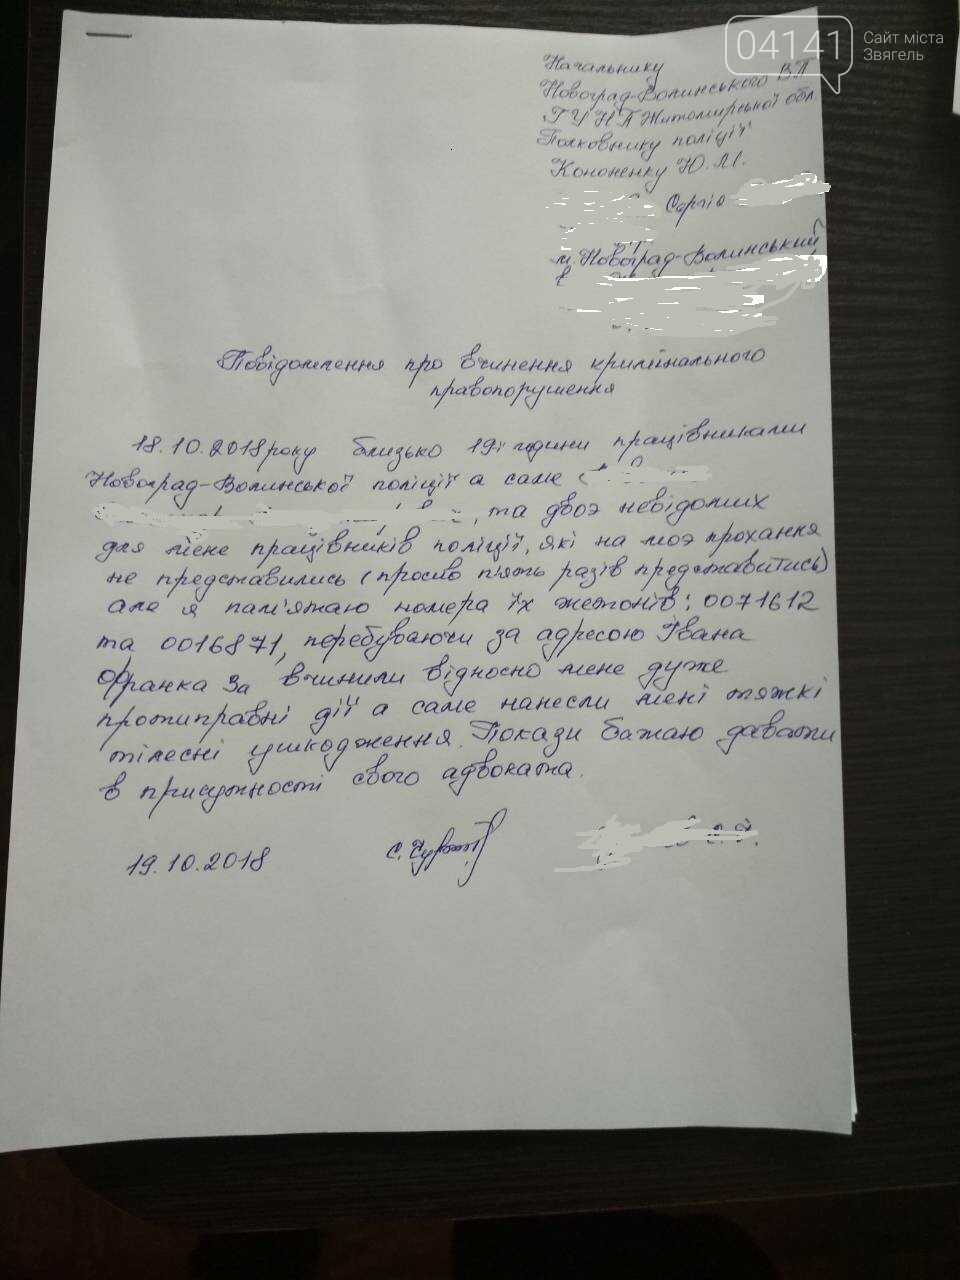 04141
Сайт міста
Звягель
Начальнику
Новоград-Волинського ВП
ГУНП Житомирської обл.
Полковнику поліції
Кононенку Ю.М.
Сергія
м. Новоград-Волинський
Повідомлення про вчинення кримінального
правопорушення
18.10.2018 року близько 19ї години працівниками
Новоград-Волинської поліції а саме
, та двоє невідомих
для мене працівників поліції, які на моє прохання
не представились (просив п'ять разів представитись)
але я пам'ятаю номера їх жетонів: 0071612
та 0016871, перебуваючи за адресою Івана
Франка 3а вчинили відносно мене дуже
протиправні дії а саме нанесли мені тяжкі
тілесні ушкодження. Покази бажаю давати
в присутності свого адвоката.
19.10.2018